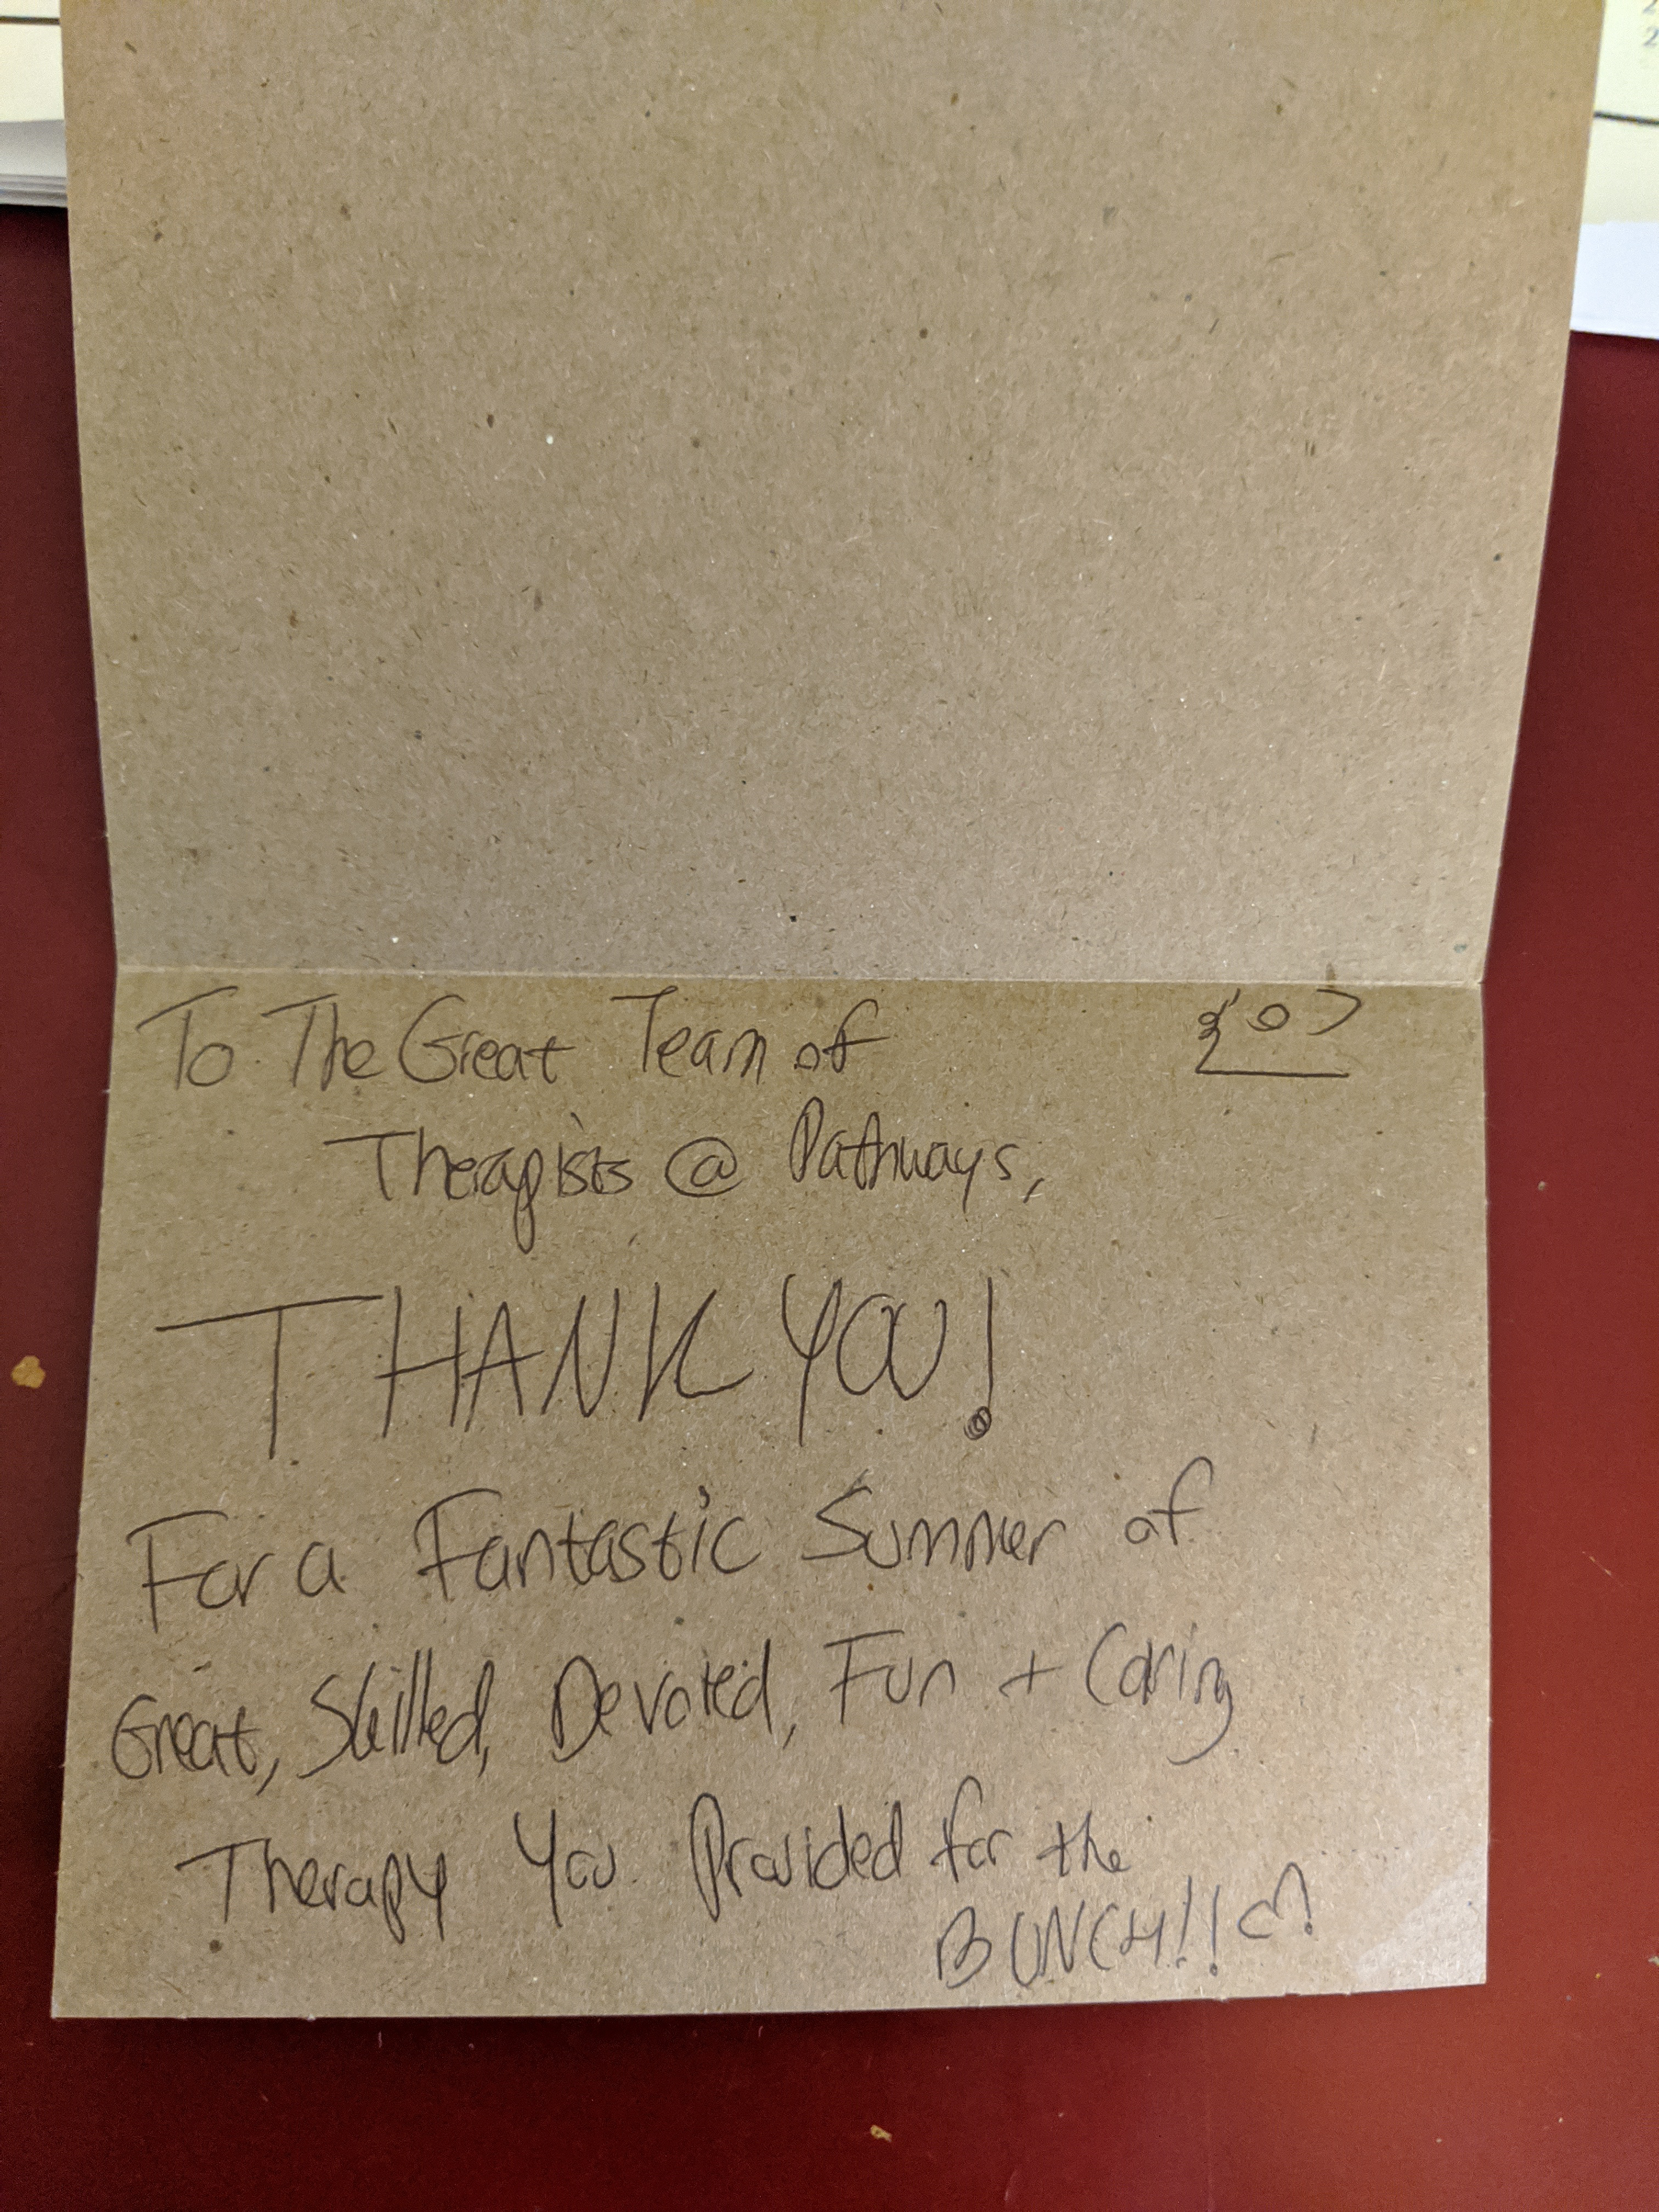 To The Great Team of
Therapists @ Pathways,
THANK YOU!
For a Fantastic Summer of
Great, Skilled, Devoted, Fun + Caring
Therapy You Provided for the
BUNCH!!